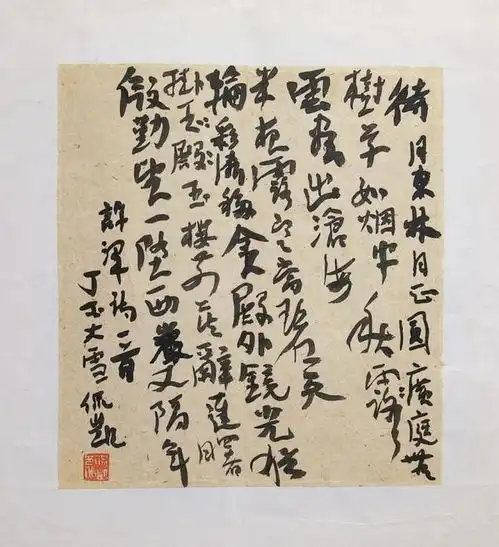 待月東林月正圓廣庭無
樹草如烟中秋
雲盡出滄海
半夜露寒當碧天
輪彩漸移金殿外鏡光猶
掛玉殿玉樓前莫辭達曙
殷勤望一墮西巖又隔年
許渾詩一首
丁酉大雪佩凱